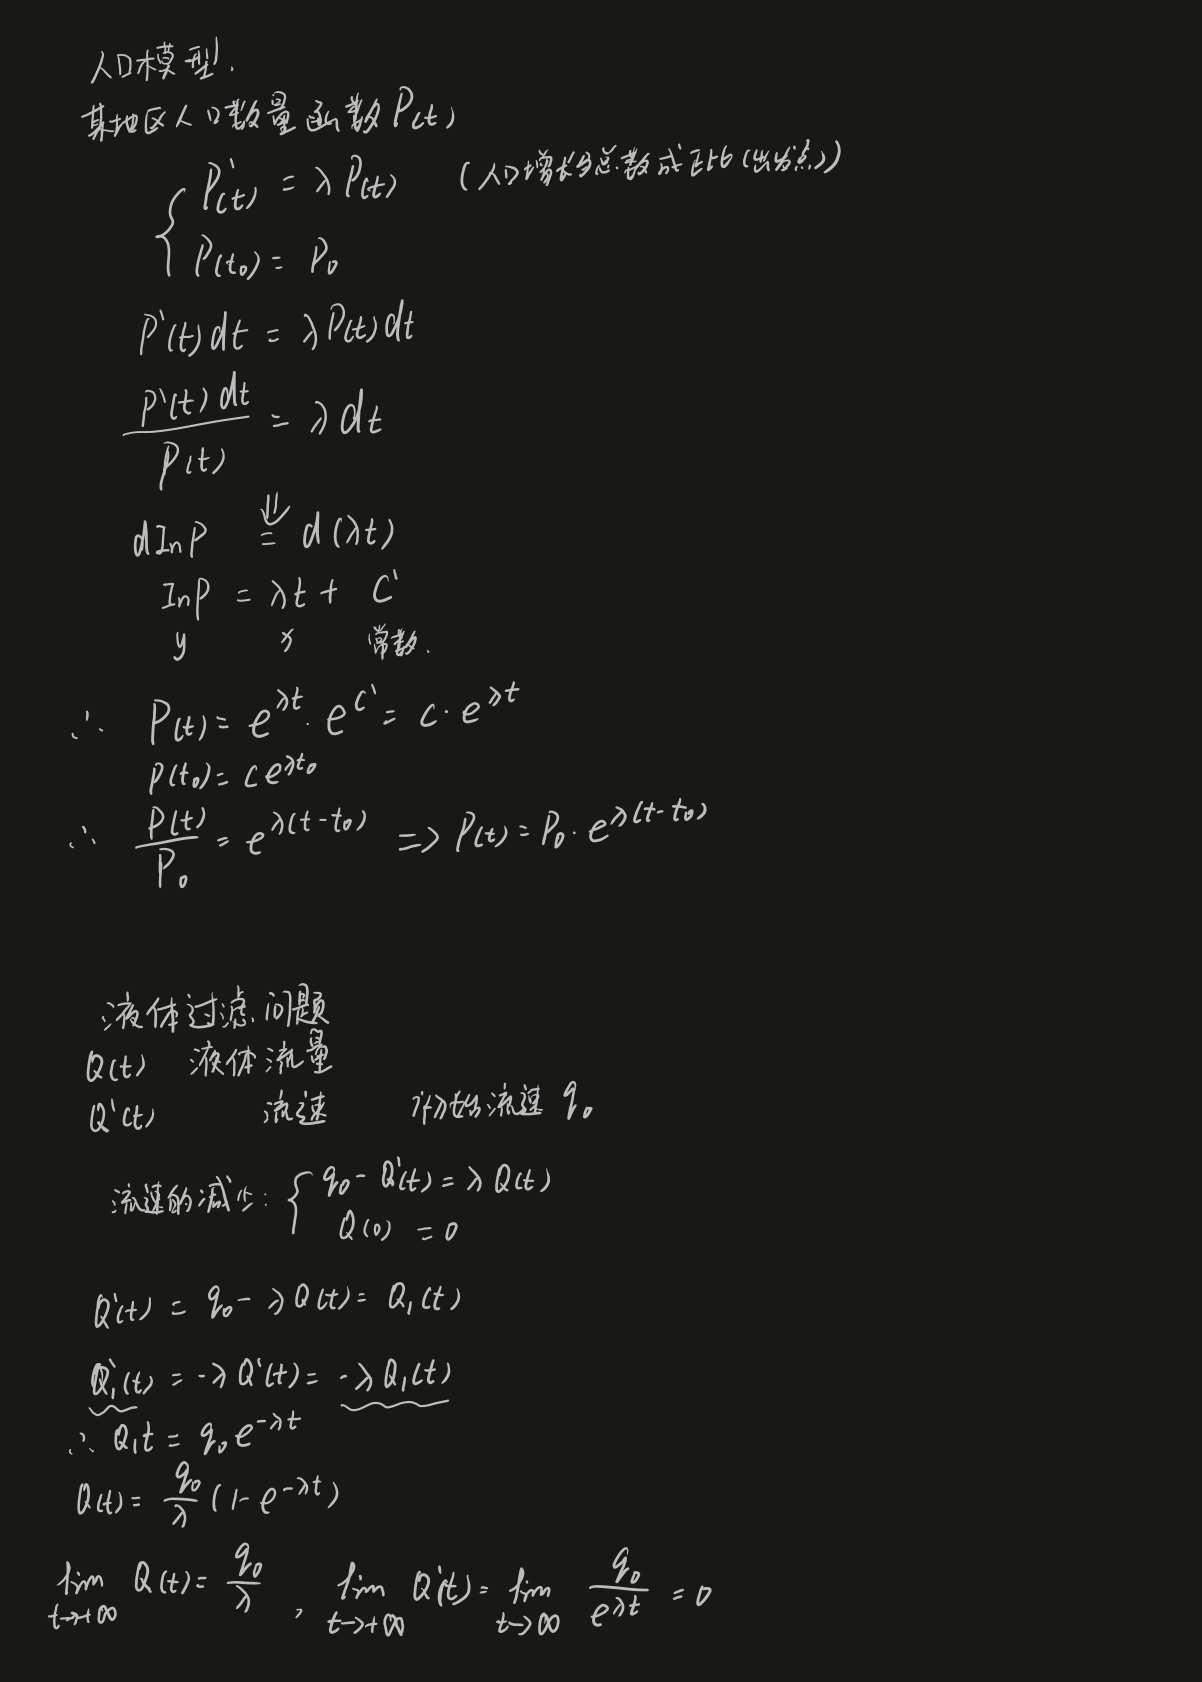 人口模型.
某地区人口数量函数P(t)
P'(t) = λP(t) (人口增长与总数成正比(出发点))
P(t₀) = P₀
P'(t)dt = λP(t)dt
P'(t)dt / P(t) = λdt
⇓
dlnP = d(λt)
lnP = λt + C'
y x 常数.
∴ P(t) = e^{λt} · e^{C'} = c · e^{λt}
P(t₀) = ce^{λt₀}
∴ P(t)/P₀ = e^{λ(t-t₀)} => P(t) = P₀ · e^{λ(t-t₀)}
液体过滤问题
Q(t) 液体流量
Q'(t) 流速 初始流速 q₀
流速的减少: { q₀ - Q'(t) = λQ(t)
Q(0) = 0
Q'(t) = q₀ - λQ(t) = Q₁(t)
Q₁'(t) = -λQ'(t) = -λQ₁(t)
∴ Q₁t = q₀e^{-λt}
Q(t) = q₀/λ (1 - e^{-λt})
lim t→+∞ Q(t) = q₀/λ , lim t→+∞ Q'(t) = lim t→∞ q₀/e^{λt} = 0